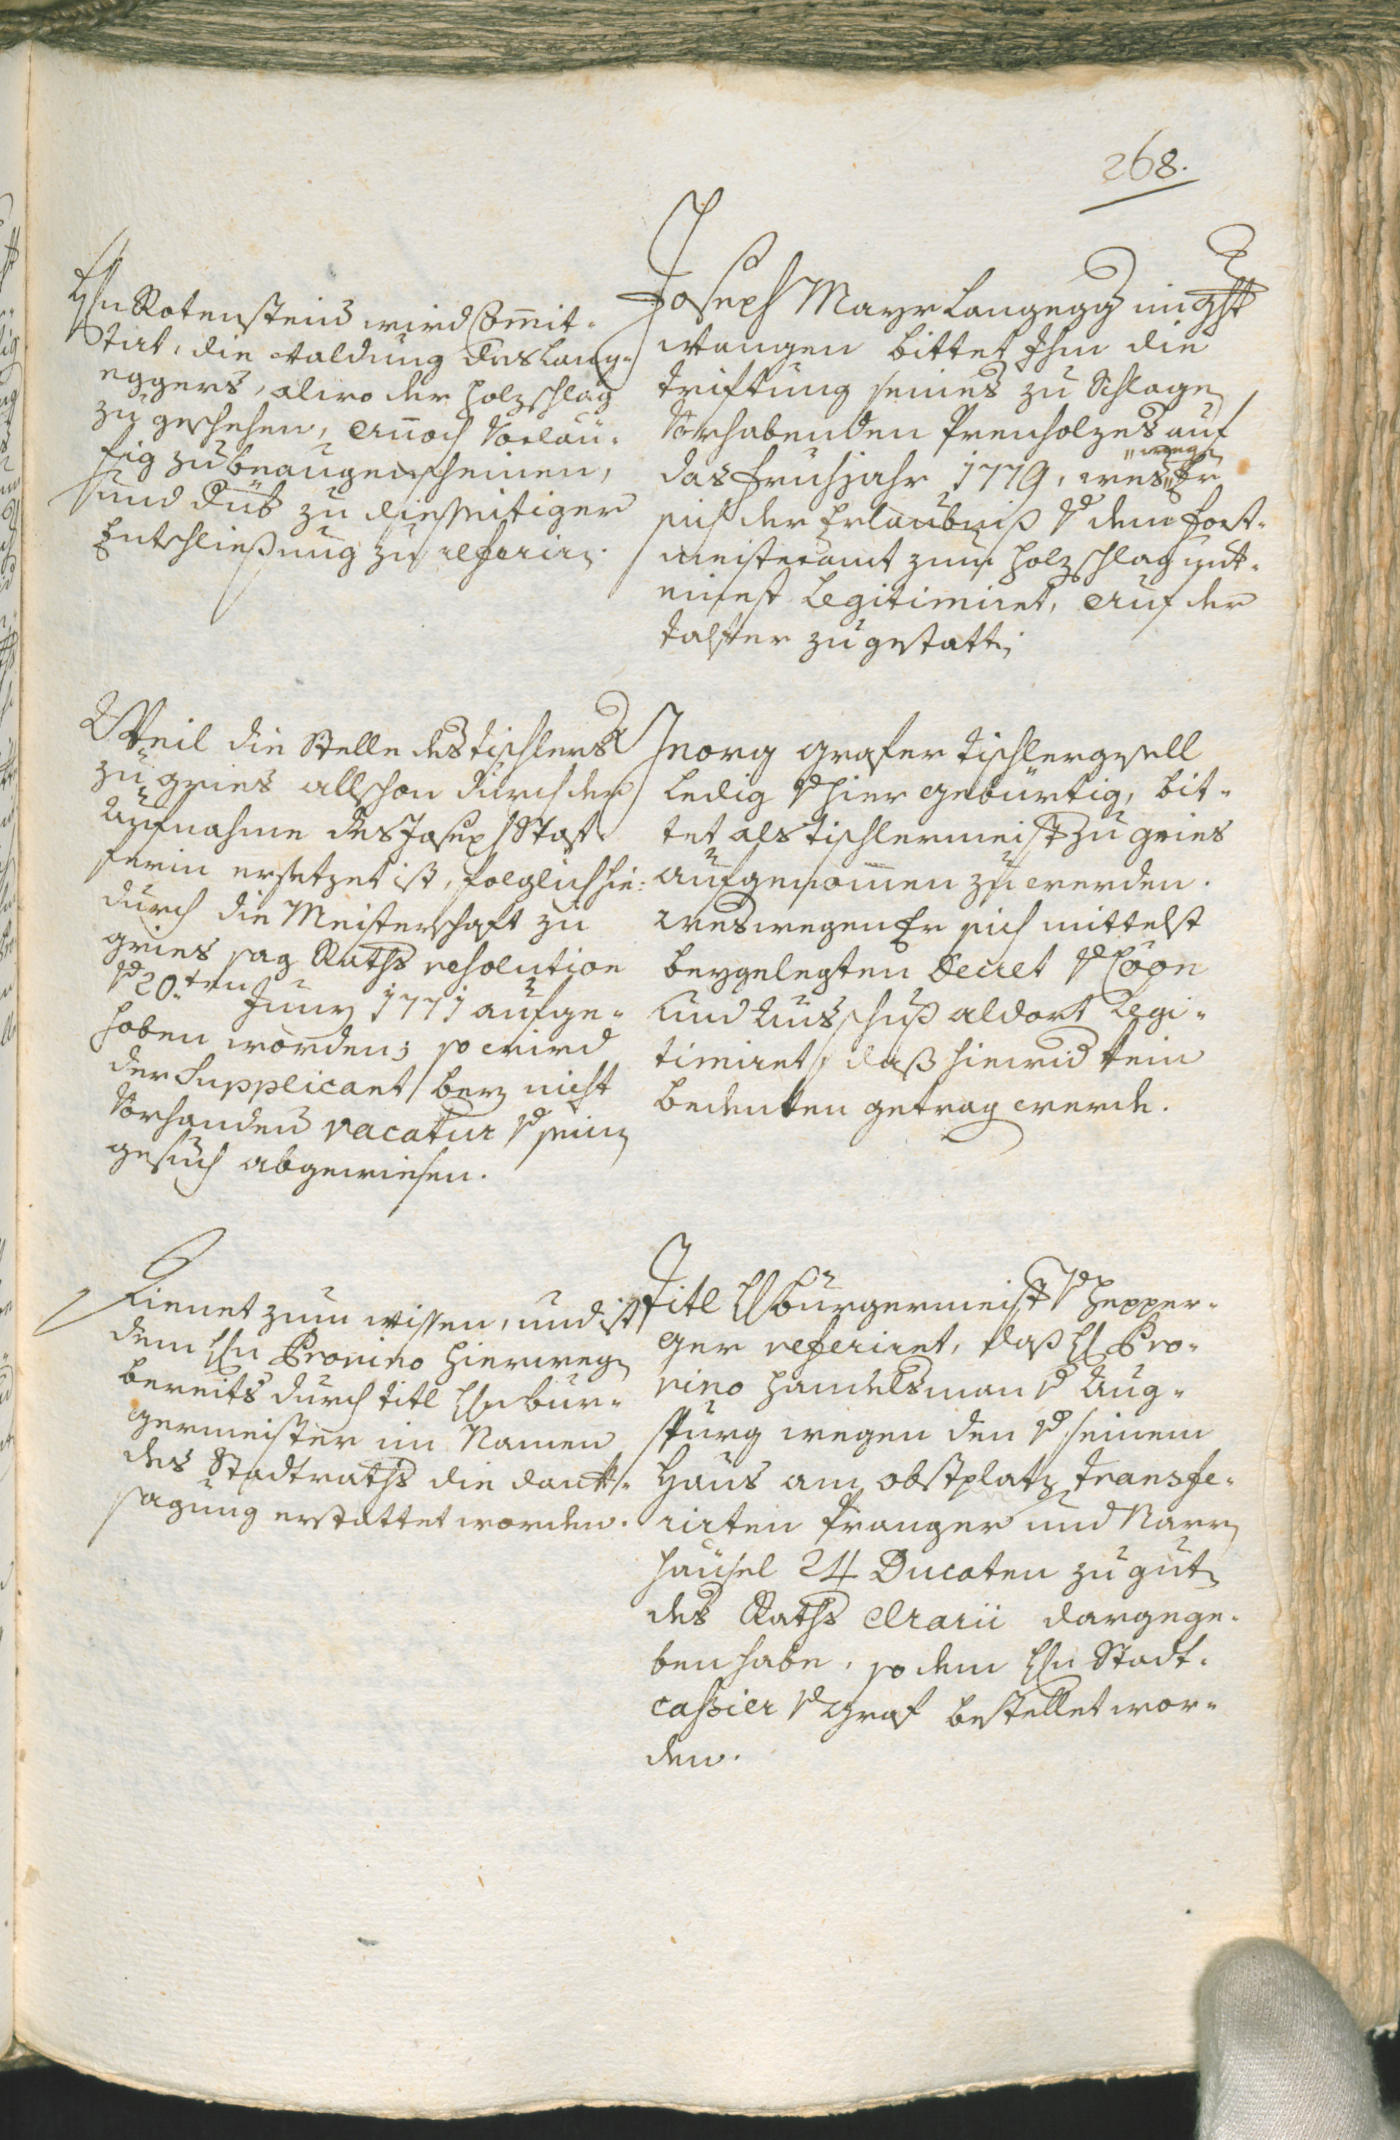 268.
Joseph Mayr Langegg im Ght
Wangen bittet Ihm die
triftung seines zu Schlagen
Vorhabenden Prenholzes auf
das Fruhjahr 1779, wes
wegen
Er
sich der Erlaubniß v dem Forst-
meisteramt zum Holzschlag
Legitimiret, auf der
talfer zu gestatten
Hrn Rotensteiner wird Com̄it-
tirt, die Waldung des Lang-
eggers, alwo der Holzschlag
zu geschehen, annoch Vorläu-
fig zu beaugenscheinen,
und zu diesseitiger
Entschließung zu referirn.
Georg Grafer Tischlergesell
Ledig v hier gebürtig, bit-
tet als Tischlermeister zu Gries
aufgenom̄en zu werden.
weswegen Er sich mittelst
beygelegten Decret v
und Ausschuß aldort Legi-
timiret, daß hierwid kein
bedenken getragen werde.
Weil die Stelle des Tischlers
zu Gries allschon durch der
Aufnahme des Joseph
ersetzet ist, folglich hie-
durch die Meisterschaft zu
Gries sag Raths resolution
v 20.ten Juny 1771 aufge-
hoben worden; so wird
der Supplicant bey nicht
Vorhanden vacatur v sein
gesuch abgewiesen.
Titl H Bürgermeister v Hepper-
ger referiret, daß H Pro-
vino Handelsman v Aug-
spurg wegen den v seinem
Haus am obstplatz transfe-
rirten Pranger und Narrn
häusel 24 Ducaten zu guten
des Raths Ærarii dargege-
ben habe, so dem Hrn Stadt-
cassier v Graf bestellet wor-
den.
Dienet zum wissen, und ist
dem Hrn Pronino hierwegen
bereits durch titl Hrn bür-
germeister im Namen
des Stadtraths die dank-
sagung erstattet worden.